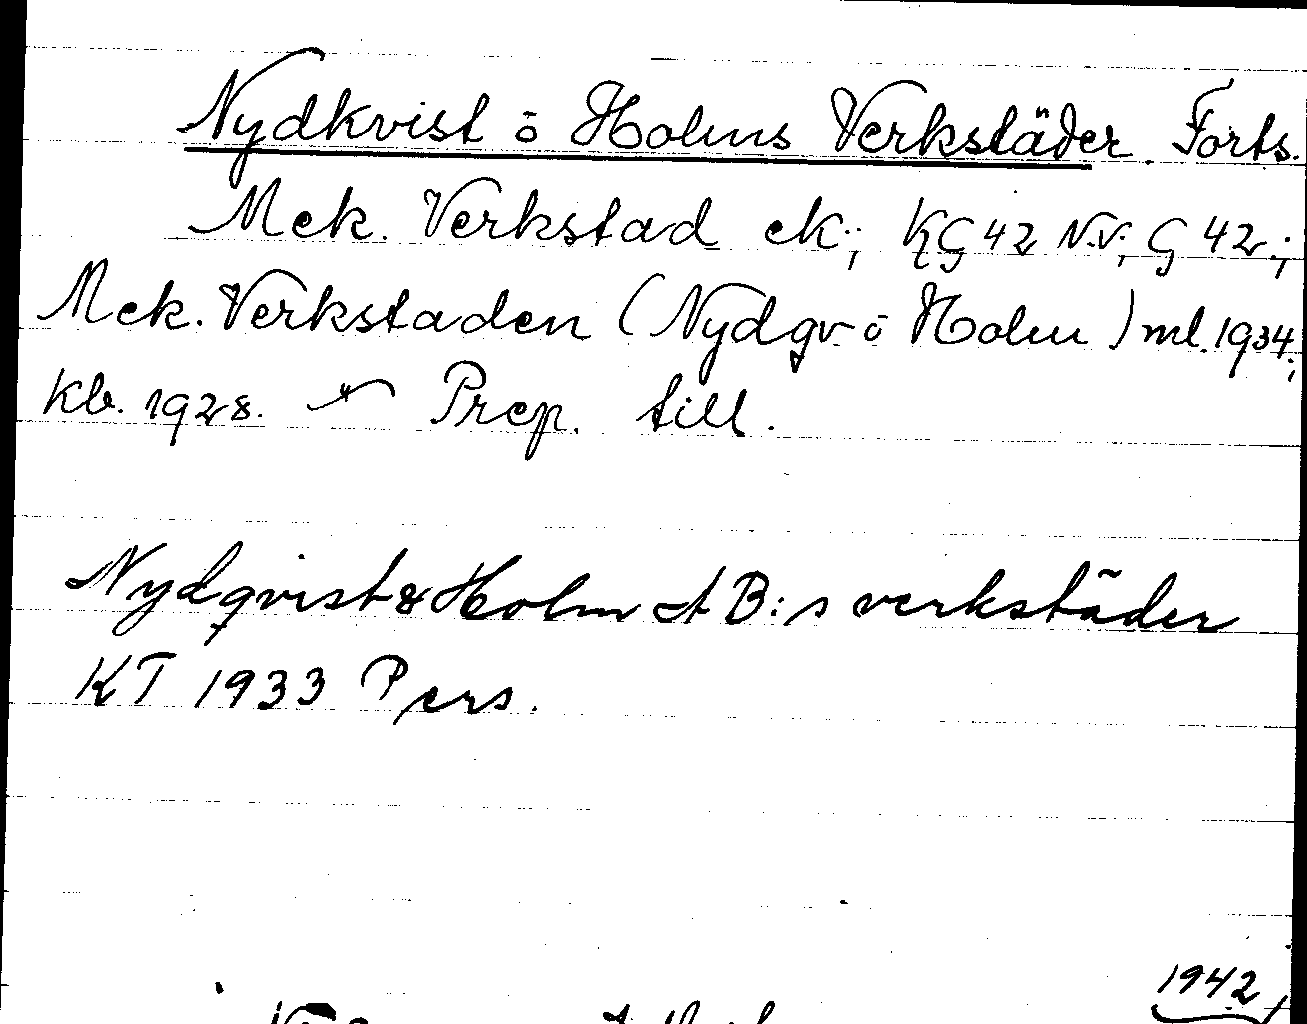 Nydkvist ö Holms Verkstäder. Forts.
Mek. Verkstad ek.; KG 42 N.V.; G 42.;
Mek. Verkstaden (Nydqv ö Holm) ml. 1934;
kb. 1928. Prep. till.
Nydqvist & Holm AB:s verkstäder
KT 1933 Pers.
1942